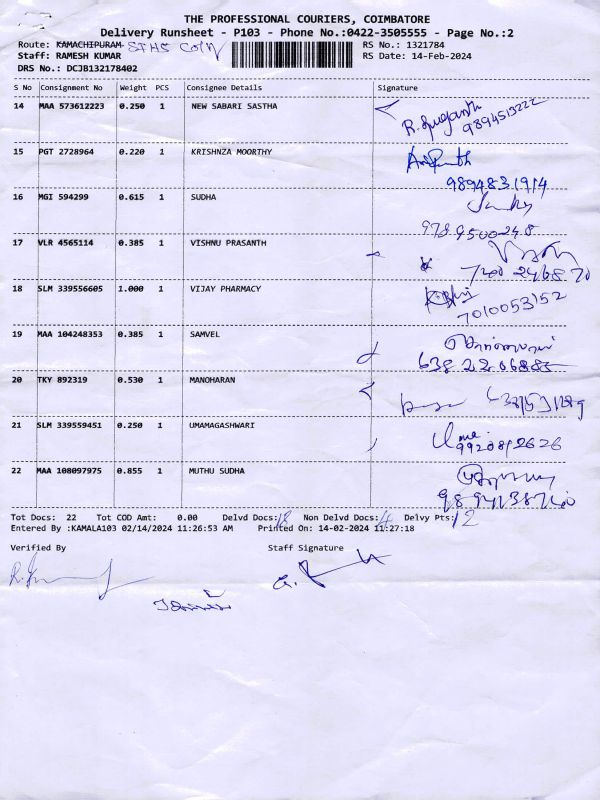 THE PROFESSIONAL COURIERS, COIMBATORE
Delivery Runsheet - P103 - Phone No.:0422-3505555 - Page No.:2
Route: KAMACHIPURAM
RS No.: 1321784
Staff: RAMESH KUMAR
RS Date: 14-Feb-2024
DRS No.: DCJB132178402
S No Consignment No Weight PCS Consignee Details Signature
14 MAA 573612223 0.250 1 NEW SABARI SASTHA
9894513222
15 PGT 2728964 0.220 1 KRISHNZA MOORTHY
9894831914
16 MGI 594299 0.615 1 SUDHA
17 VLR 4565114 0.385 1 VISHNU PRASANTH
18 SLM 339556605 1.000 1 VIJAY PHARMACY
7010053152
19 MAA 104248353 0.385 1 SAMVEL
20 TKY 892319 0.530 1 MANOHARAN
21 SLM 339559451 0.250 1 UMAMAGASHWARI
Uma
22 MAA 108097975 0.855 1 MUTHU SUDHA
Tot Docs: 22 Tot COD Amt: 0.00 Delvd Docs: 18 Non Delvd Docs: 4 Delvy Pts: 12
Entered By :KAMALA103 02/14/2024 11:26:53 AM Printed On: 14-02-2024 11:27:18
Verified By Staff Signature